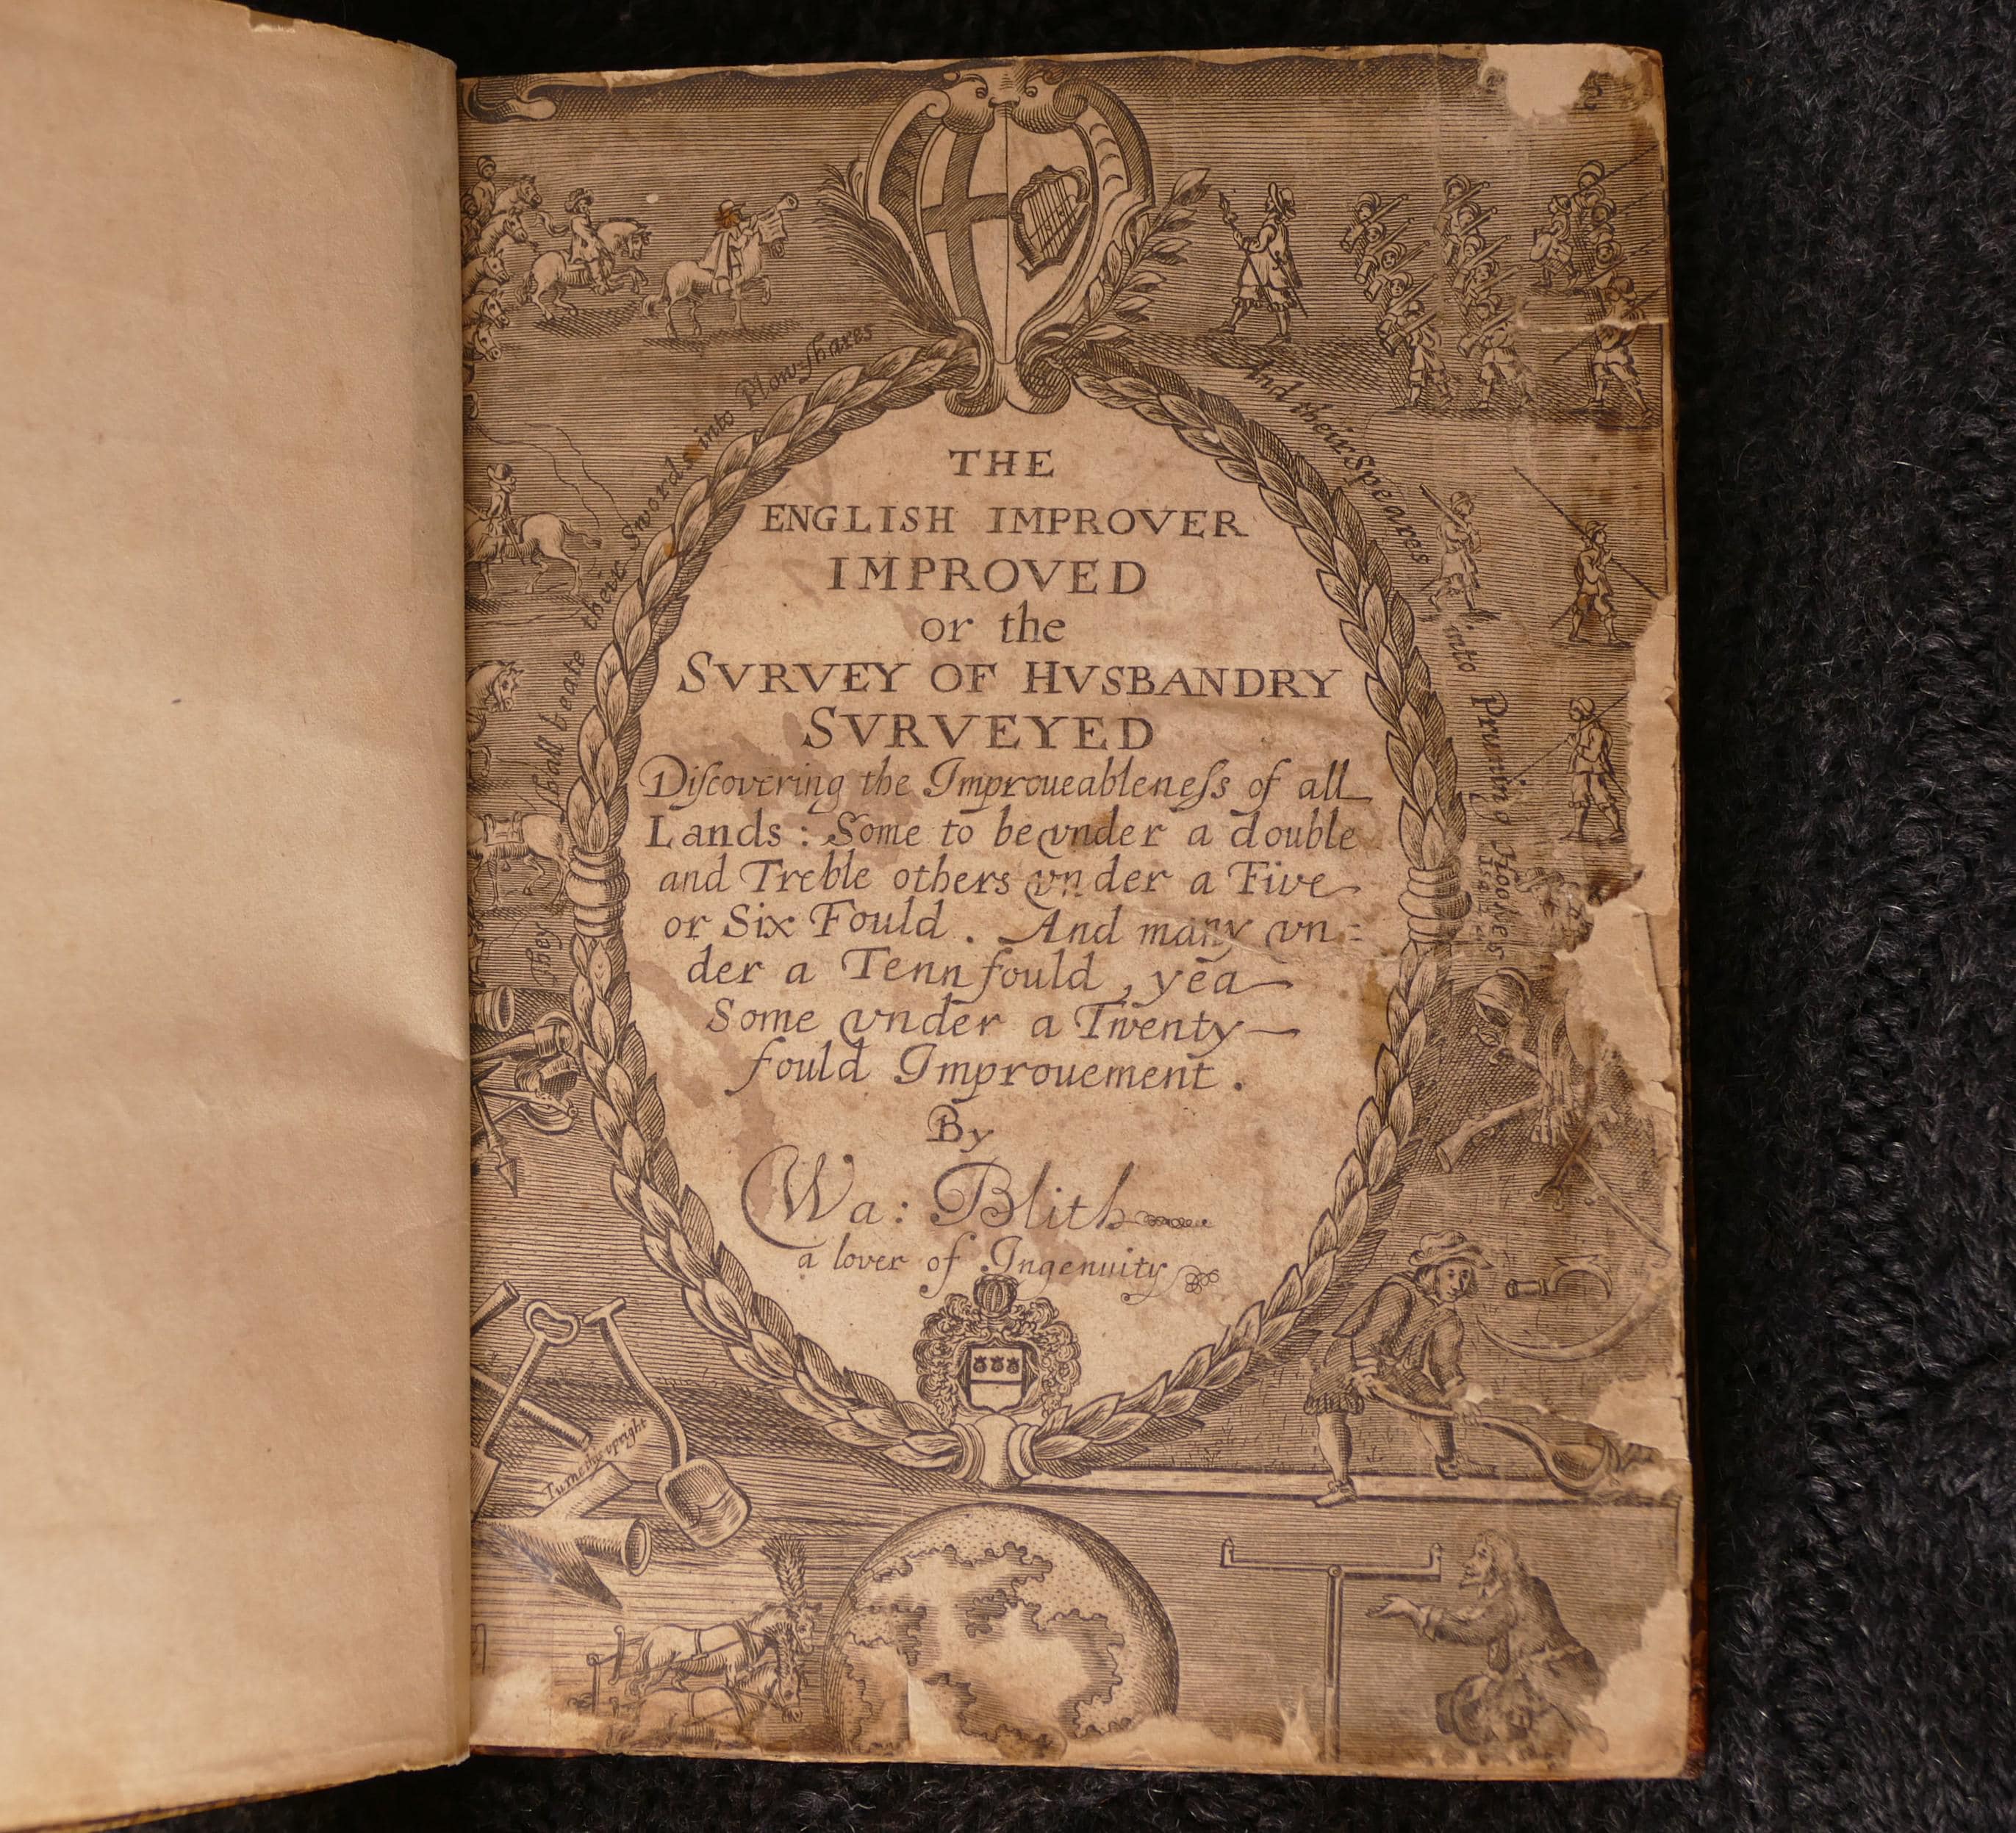 They shall beate their Swords into Plow-ſhares
And their Speares into Pruning Hookes
Isa: 2
THE
ENGLISH IMPROVER
IMPROVED
or the
SVRVEY OF HVSBANDRY
SVRVEYED
Diſcovering the Improueableneſs of all
Lands: Some to be vnder a double
and Treble others vnder a Five
or Six Fould. And many vn=
der a Tenn fould, yea
Some vnder a Twenty
fould Improuement.
By
Wa: Blith
a lover of Ingenuity
Turne this upright